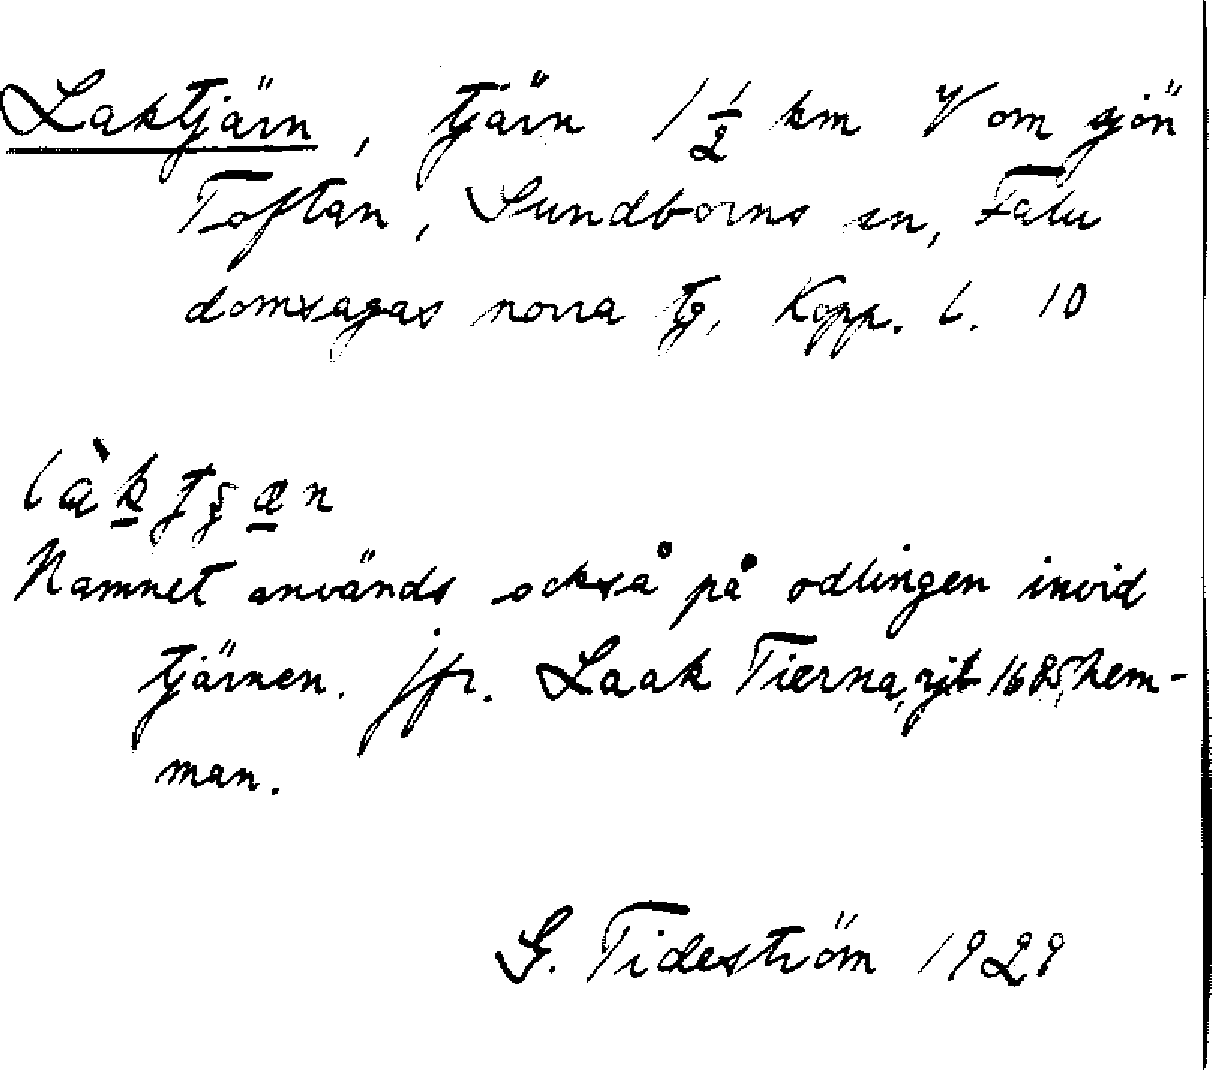 Laktjärn, tjärn 1 1/2 km V om sjön
Toftan, Sundborns sn, Falu
domsagas norra tg, Kopp. l. 10
Namnet används också på odlingen invid
tjärnen. jfr. Laak Tierna, rjb 1685, hem-
man.
G. Tideström 1929